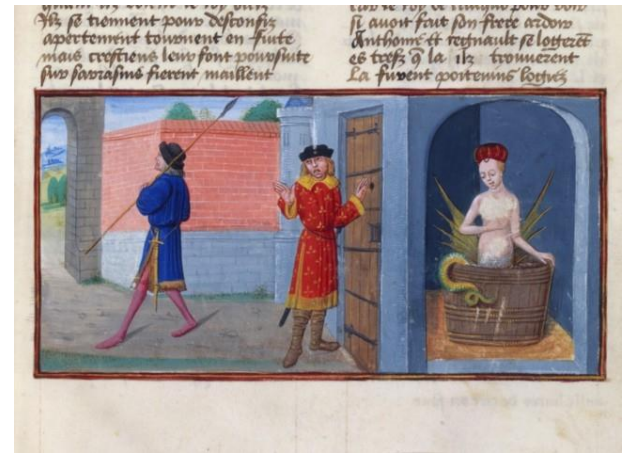 Ilz se tiennent pour desconfiz
apertement tournent en fuite
mais crestiens leur font poursuite
sur sarrasins fierent maillent
si avoit fait son frere ardoir
Anthoine et regnault se logerent
es trefz q̃ la ilz trouverent
La furent poitevins logiez